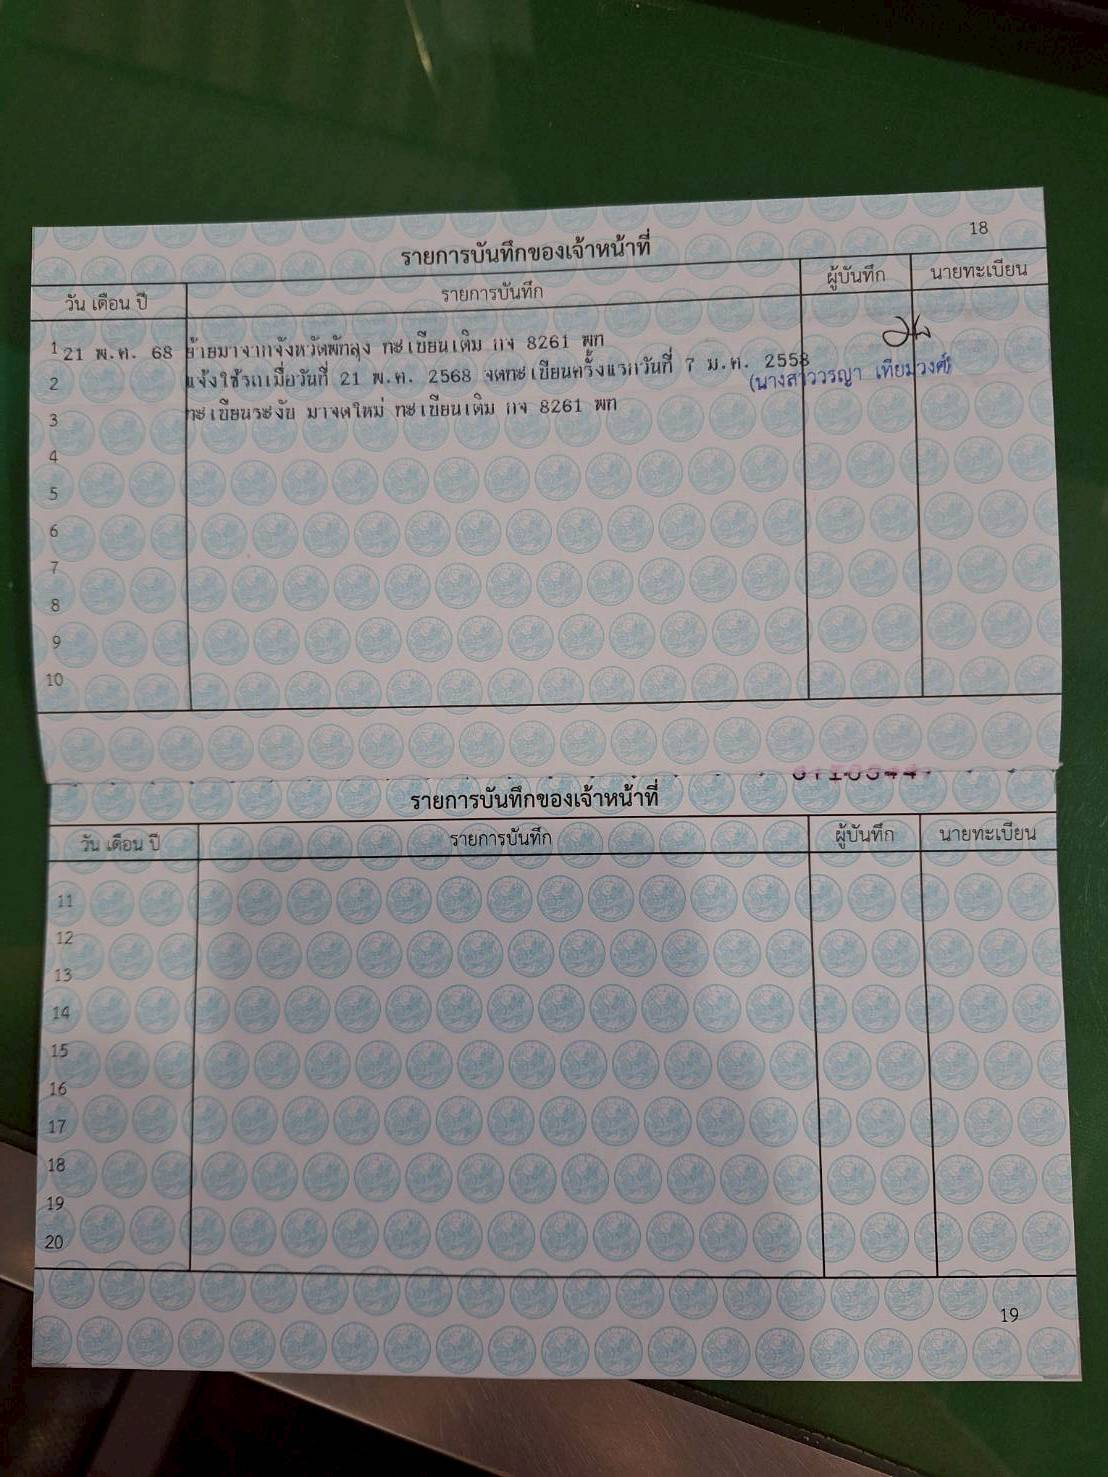 18
รายการบันทึกของเจ้าหน้าที่
วัน เดือน ปี รายการบันทึก ผู้บันทึก นายทะเบียน
1 21 พ.ค. 68 ย้ายมาจากจังหวัดพัทลุง ทะเบียนเดิม กจ 8261 พท
2 แจ้งใช้รถเมื่อวันที่ 21 พ.ค. 2568 จดทะเบียนครั้งแรกวันที่ 7 ม.ค. 2558
(นางสาววรญา เทียมวงศ์)
3 ทะเบียนระงับ มาจดใหม่ ทะเบียนเดิม กจ 8261 พท
4
5
6
7
8
9
10
รายการบันทึกของเจ้าหน้าที่
วัน เดือน ปี รายการบันทึก ผู้บันทึก นายทะเบียน
11
12
13
14
15
16
17
18
19
20
19